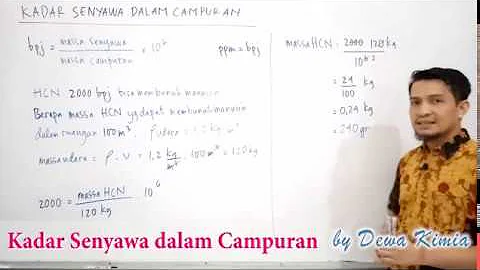 KADAR SENYAWA DALAM CAMPURAN
bpj = massa senyawa / massa campuran × 10⁶
ppm = bpj
HCN 2000 bpj bisa membunuh manusia
Berapa massa HCN yg dapat membunuh manusia
dalam ruangan 100 m³. ρ udara = 1,2 kg m⁻³
massa udara = ρ . V = 1,2 kg/m³ . 100 m³ = 120 kg
2000 = massa HCN / 120 kg 10⁶
massa HCN = 2000 120 kg / 10⁶
= 24 / 100 kg
= 0,24 kg
= 240 gr
Kadar Senyawa dalam Campuran by Dewa Kimia